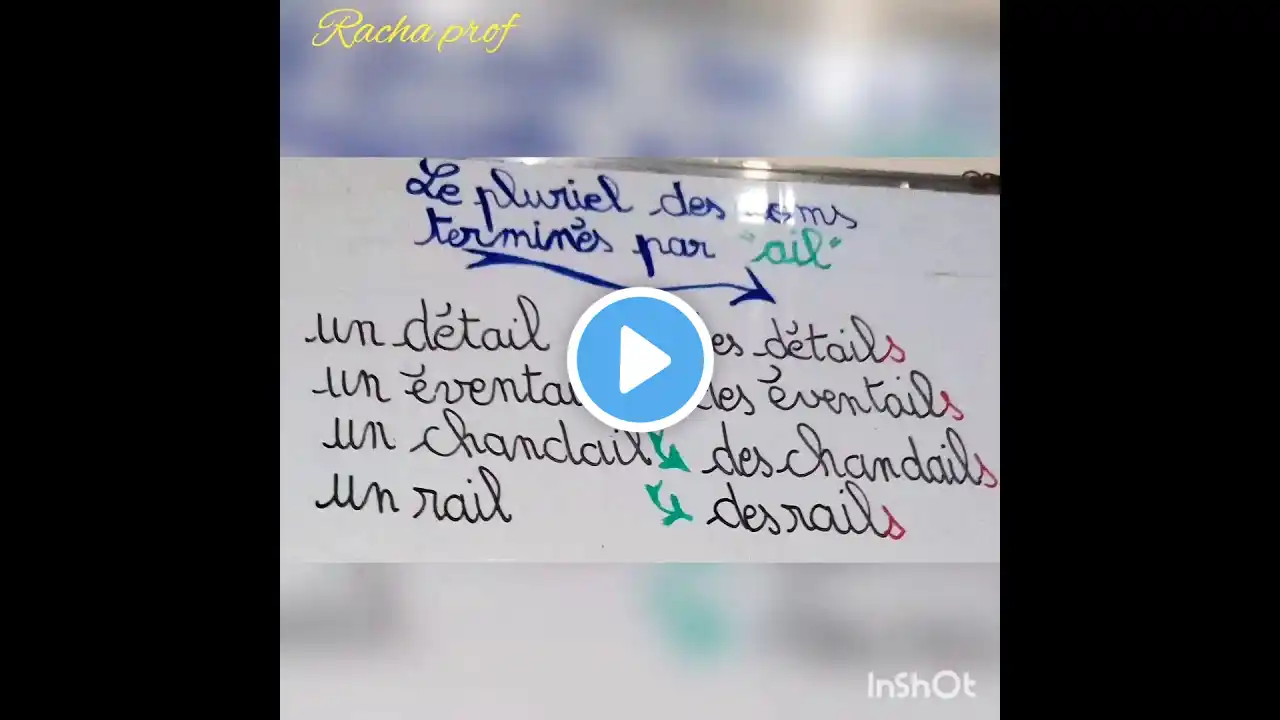 Racha prof
Le pluriel des
terminés par "ail"
un détail des détails
un des éventails
un chandail des chandails
un rail des rails
InShOt